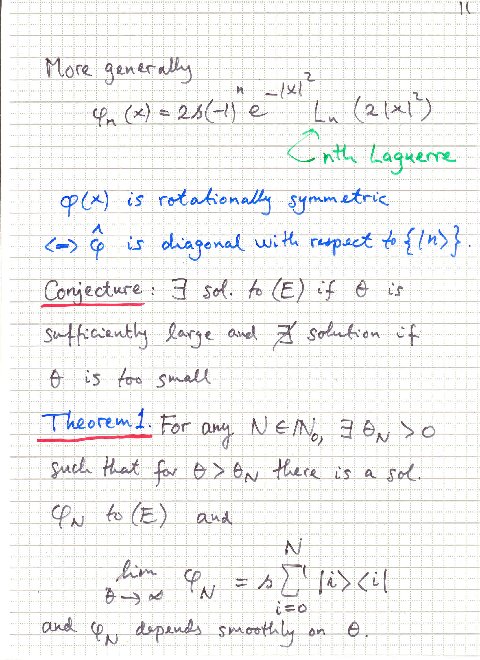 11
More generally
φₙ(x) = 2s(-1)ⁿ e^{-|x|²} Lₙ (2|x|²)
nth Laguerre
φ(x) is rotationally symmetric
<=> φ̂ is diagonal with respect to {|n>}.
Conjecture: ∃ sol. to (E) if θ is
sufficiently large and ∄ solution if
θ is too small
Theorem 1. For any N ∈ ℕ₀, ∃ θ_N > 0
such that for θ > θ_N there is a sol.
φ_N to (E) and
lim_{θ→∞} φ_N = s ∑_{i=0}^{N} |i><i|
and φ_N depends smoothly on θ.